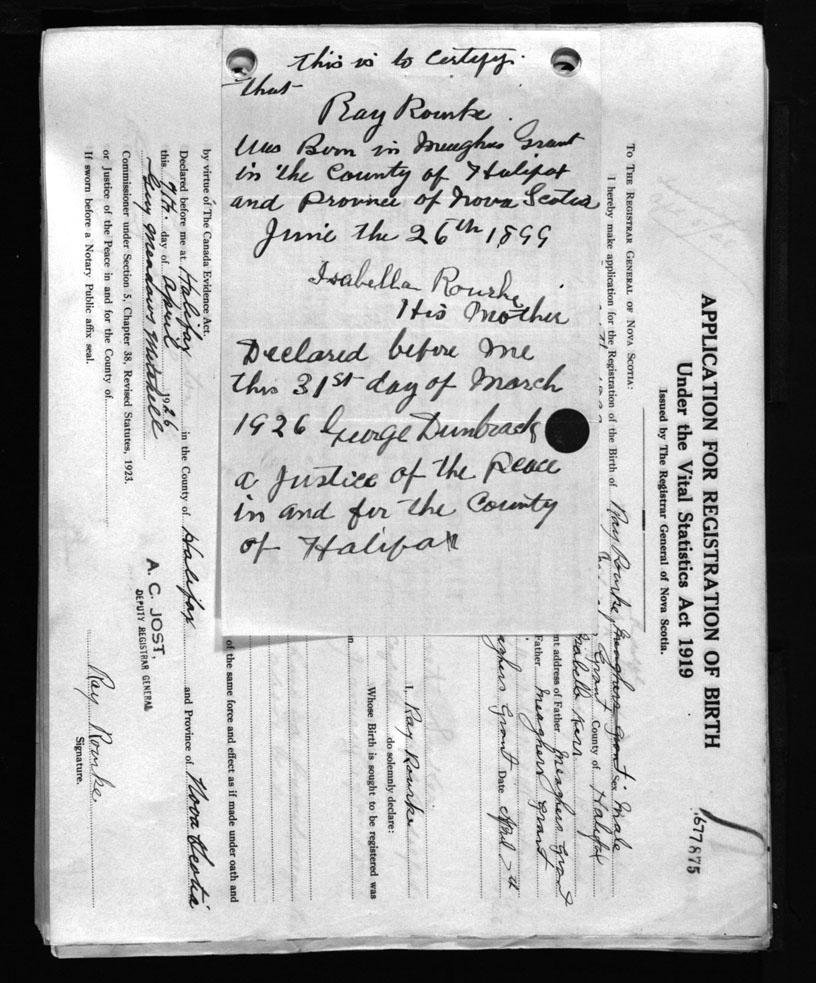 This is to Certify
that
Ray Rourke
Was Born in Meaghers Grant
in the County of Halifax
and Province of Nova Scotia
June the 26th 1899
Isabella Rourke
His Mother
Declared before me
this 31st day of March
1926 George Dunbrack
a Justice of the Peace
in and for the County
of Halifax
677875
APPLICATION FOR REGISTRATION OF BIRTH
Under the Vital Statistics Act 1919
Issued by The Registrar General of Nova Scotia.
TO THE REGISTRAR GENERAL OF NOVA SCOTIA:
I hereby make application for the Registration of the Birth of Ray Rourke, Meaghers Grant Sex Male
Grant County of Halifax
Isabella Kerr
nt address of Father Meaghers Grant
Father Meaghers Grant
aghers Grant Date April 7th
I, Ray Rourke
do solemnly declare:
Whose Birth is sought to be registered was
on
of the same force and effect as if made under oath and
by virtue of The Canada Evidence Act.
Declared before me at Halifax in the County of Halifax and Province of Nova Scotia
this 9th. day of April 1926
Guy Meadows
Commissioner under Section 5, Chapter 38, Revised Statutes, 1923.
or Justice of the Peace in and for the County of
If sworn before a Notary Public affix seal.
A. C. JOST,
DEPUTY REGISTRAR GENERAL
Ray Rourke
Signature.